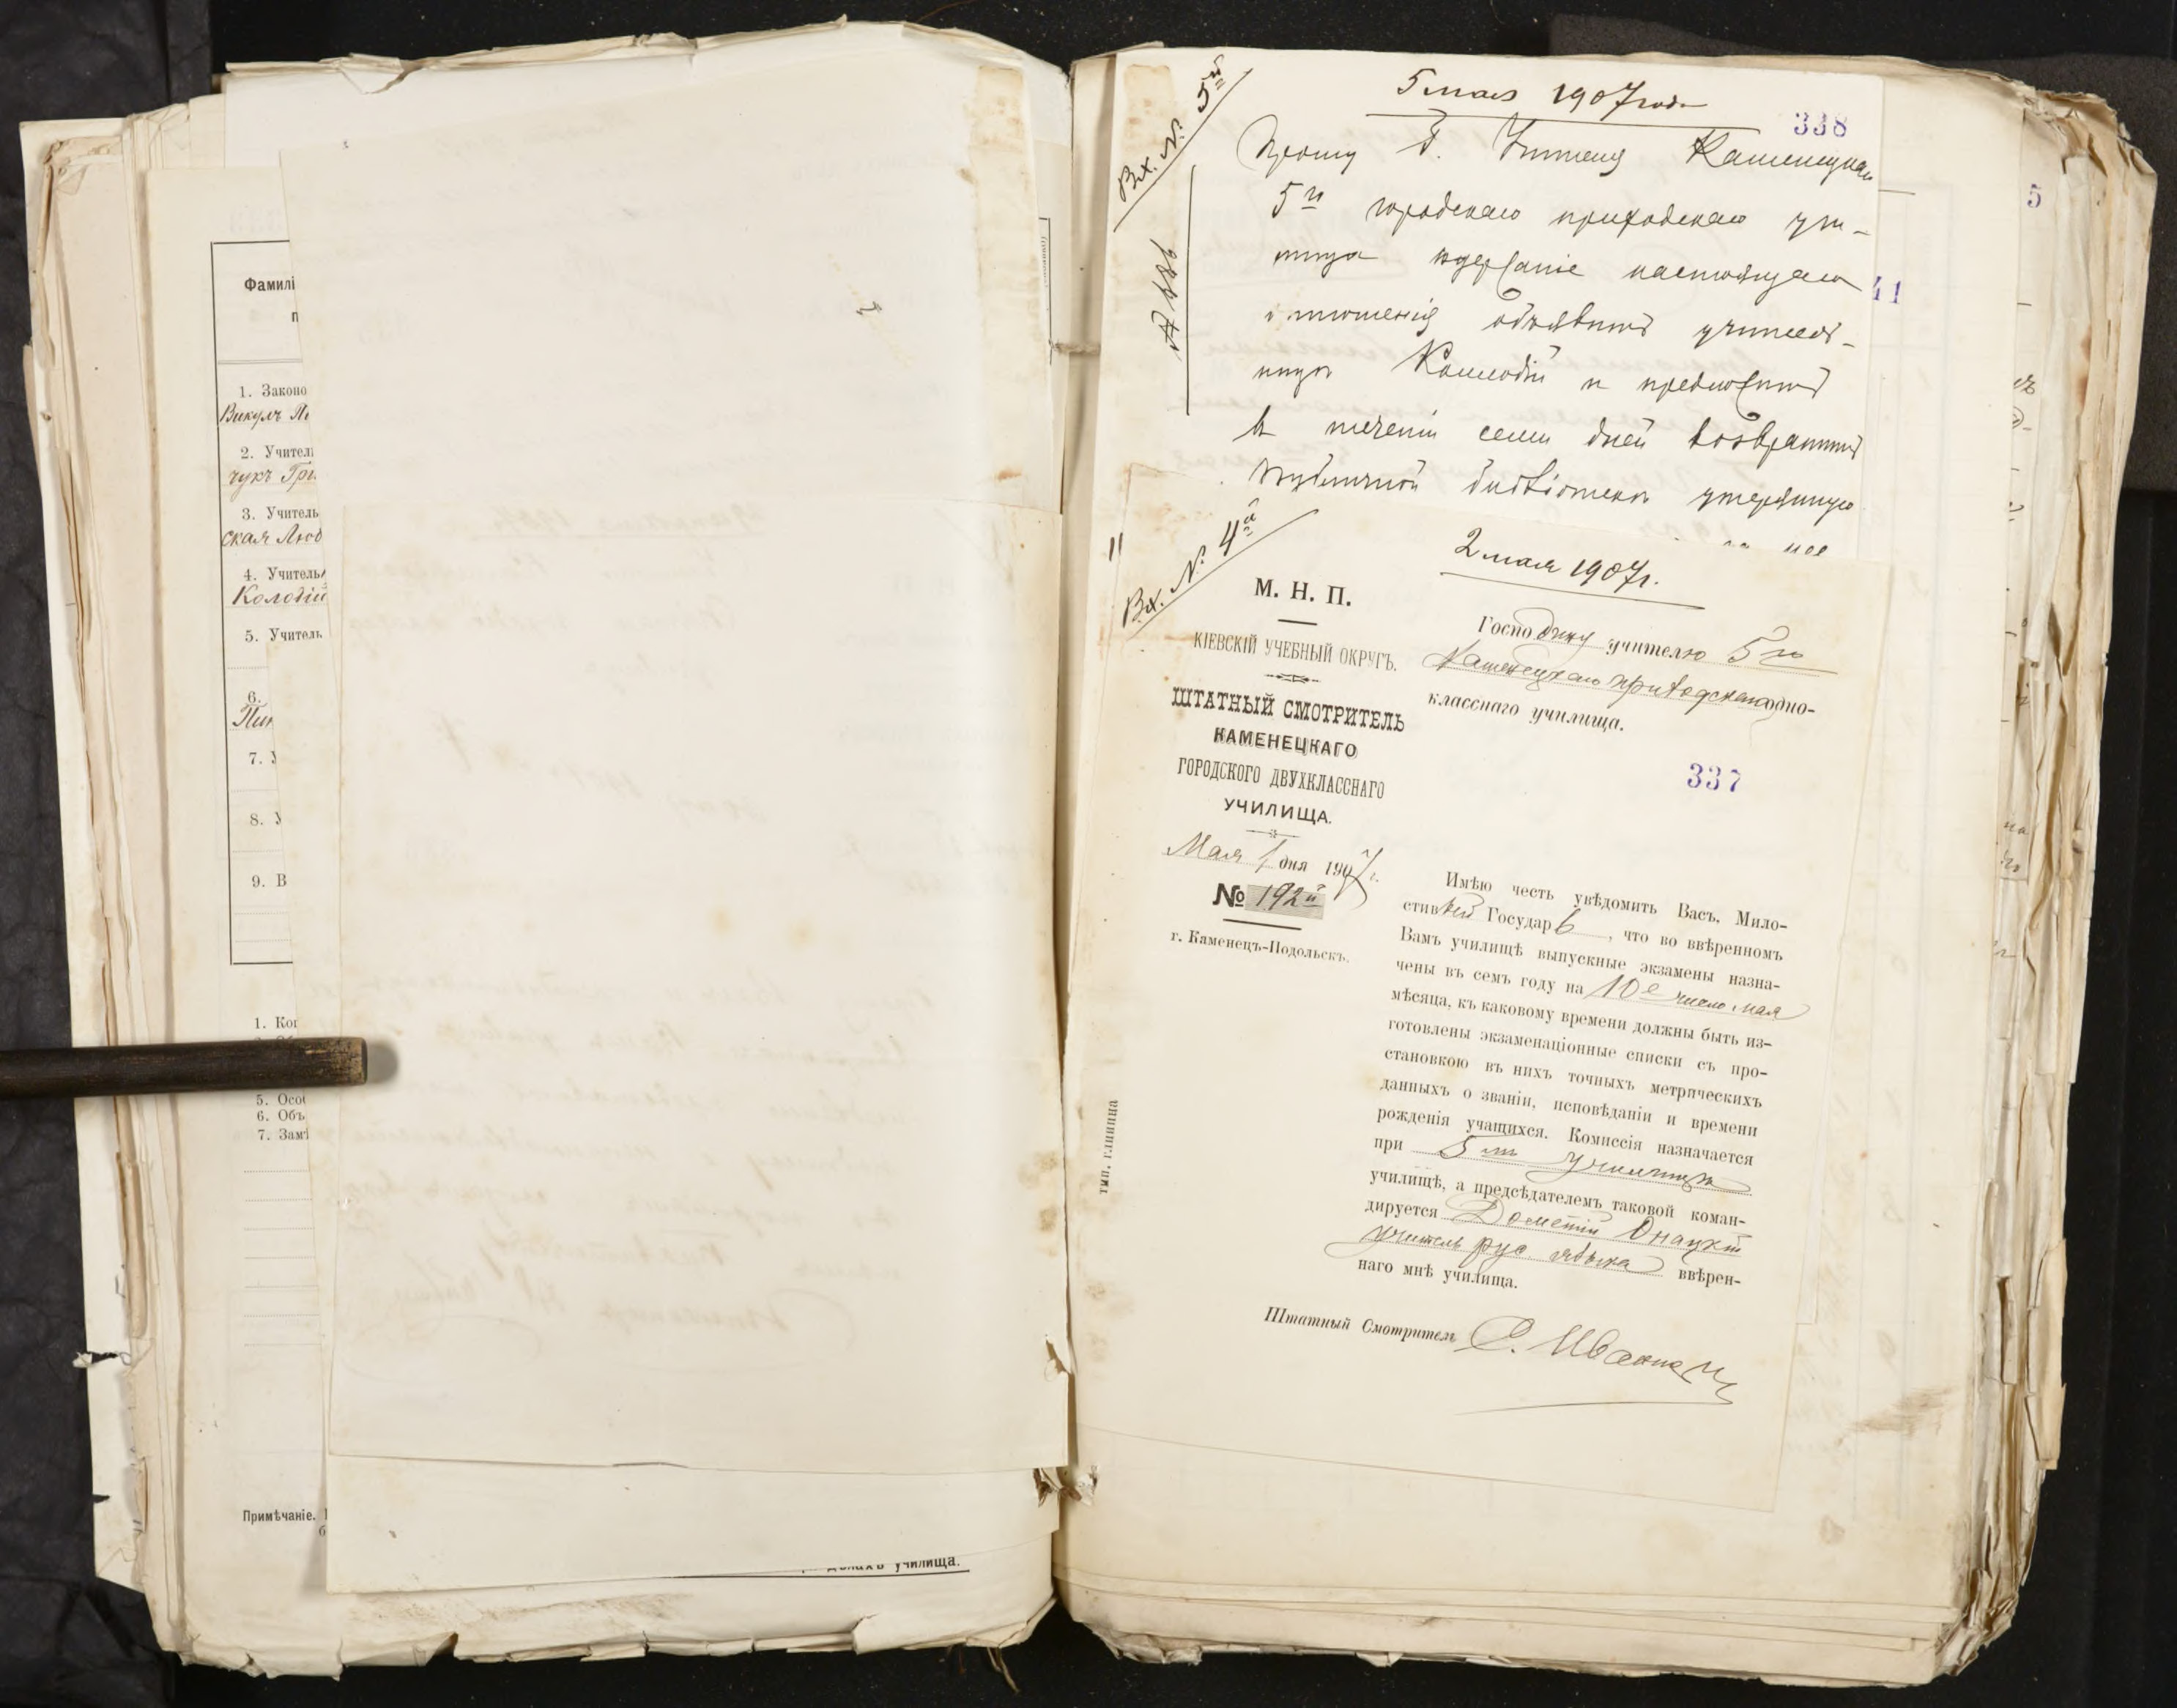 Фамилі
п
1. Законо
Викулъ Пе
2. Учител
чукъ Гри
3. Учитель
ская Люд
4. Учитель
Колодій
5. Учитель
6.
7. У
8. У
9. В
1. Ког
5. Особ
6. Объ
7. Замѣ
Примѣчаніе.
училища.
5 мая 1907 года
338
Вх. № 5й
№ 186
Прошу Г. Учителя Каменецкаго
5го городского приходскаго учи-
лища содержаніе настоящаго
отношенія объявить учитель-
ницѣ Колодій и предложить
въ теченіи семи дней возвратить
публичной библіотекѣ утерянную
5
41
Вх. № 4й
2 мая 1907 г.
М. Н. П.
КІЕВСКІЙ УЧЕБНЫЙ ОКРУГЪ.
ШТАТНЫЙ СМОТРИТЕЛЬ
КАМЕНЕЦКАГО
ГОРОДСКОГО ДВУХКЛАССНАГО
УЧИЛИЩА.
Мая 1 дня 1907 г.
№ 192й
г. Каменецъ-Подольскъ.
тип. глинина
Господину учителю 5го
Каменецкаго приходскаго одно-
класснаго училища.
337
Имѣю честь увѣдомить Васъ, Мило-
стивый Государь, что во ввѣренномъ
Вамъ училищѣ выпускные экзамены назна-
чены въ семъ году на 10е число мая
мѣсяца, къ каковому времени должны быть из-
готовлены экзаменаціонные списки съ про-
становкою въ нихъ точныхъ метрическихъ
данныхъ о званіи, исповѣданіи и времени
рожденія учащихся. Комиссія назначается
при 5мъ училищѣ
училищѣ, а предсѣдателемъ таковой коман-
дируется Дометій Онацкій
учитель рус языка ввѣрен-
наго мнѣ училища.
Штатный Смотритель